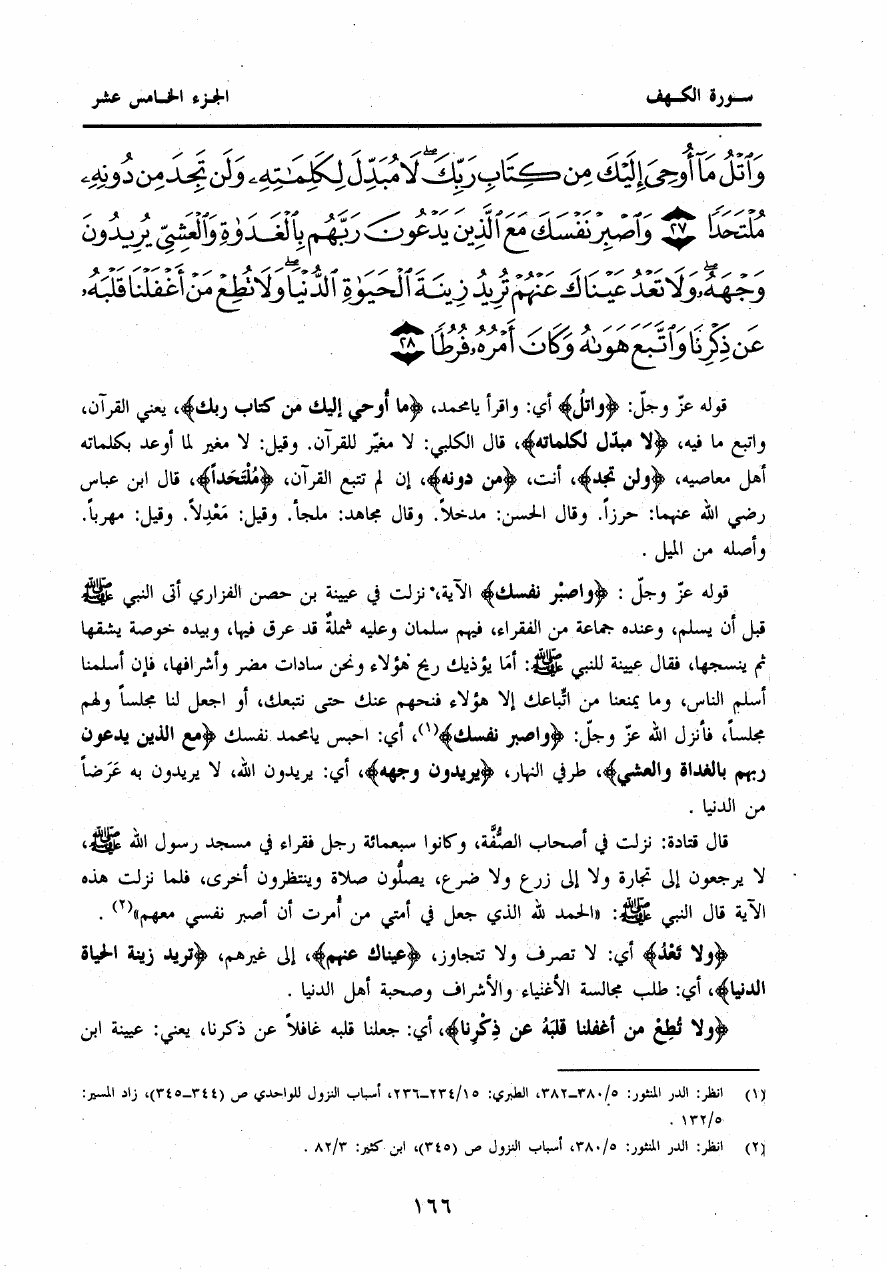 سـورة الكـهف
الجزء الخـامس عشر
وَٱتۡلُ مَآ أُوحِىَ إِلَيۡكَ مِن كِتَابِ رَبِّكَۖ لَا مُبَدِّلَ لِكَلِمَٰتِهِۦ وَلَن تَجِدَ مِن دُونِهِۦ
مُلۡتَحَدٗا ٢٧ وَٱصۡبِرۡ نَفۡسَكَ مَعَ ٱلَّذِينَ يَدۡعُونَ رَبَّهُم بِٱلۡغَدَوٰةِ وَٱلۡعَشِىِّ يُرِيدُونَ
وَجۡهَهُۥۖ وَلَا تَعۡدُ عَيۡنَاكَ عَنۡهُمۡ تُرِيدُ زِينَةَ ٱلۡحَيَوٰةِ ٱلدُّنۡيَاۖ وَلَا تُطِعۡ مَنۡ أَغۡفَلۡنَا قَلۡبَهُۥ
عَن ذِكۡرِنَا وَٱتَّبَعَ هَوَىٰهُ وَكَانَ أَمۡرُهُۥ فُرُطٗا ٢٨
قوله عزّ وجلّ: ﴿واتلُ﴾ أي: واقرأ يامحمد، ﴿ما أُوحي إليك من كتاب ربك﴾، يعني القرآن،
واتبع ما فيه، ﴿لا مبدّل لكلماته﴾، قال الكلبي: لا مغيّر للقرآن. وقيل: لا مغير لما أوعد بكلماته
أهل معاصيه، ﴿ولن تجد﴾، أنت، ﴿من دونه﴾، إن لم تتبع القرآن، ﴿مُلْتَحَداً﴾، قال ابن عباس
رضي الله عنهما: حرزاً. وقال الحسن: مدخلاً. وقال مجاهد: ملجأ. وقيل: مَعْدِلاً. وقيل: مهرباً.
وأصله من الميل .
قوله عزّ وجلّ : ﴿واصبْر نفسك﴾ الآية، نزلت في عيينة بن حصن الفزاري أتى النبي ﷺ
قبل أن يسلم، وعنده جماعة من الفقراء، فيهم سلمان وعليه شملةٌ قد عرق فيها، وبيده خوصة يشقها
ثم ينسجها، فقال عيينة للنبي ﷺ: أمَا يؤذيك ريح هؤلاء ونحن سادات مضر وأشرافها، فإن أسلمنا
أسلم الناس، وما يمنعنا من اتِّباعك إلا هؤلاء فنحهم عنك حتى نتبعك، أو اجعل لنا مجلساً ولهم
مجلساً، فأنزل الله عزّ وجلّ: ﴿واصبر نفسك﴾(١)، أي: احبس يامحمد نفسك ﴿مع الذين يدعون
ربهم بالغداة والعشي﴾، طرفي النهار، ﴿يريدون وجهه﴾، أي: يريدون الله، لا يريدون به عَرَضاً
من الدنيا .
قال قتادة: نزلت في أصحاب الصُّفَّة، وكانوا سبعمائة رجل فقراء في مسجد رسول الله ﷺ،
لا يرجعون إلى تجارة ولا إلى زرع ولا ضرع، يصلُّون صلاة وينتظرون أخرى، فلما نزلت هذه
الآية قال النبي ﷺ: «الحمد لله الذي جعل في أمتي من أُمرت أن أصبر نفسي معهم»(٢) .
﴿ولا تَعْدُ﴾ أي: لا تصرف ولا تتجاوز، ﴿عيناك عنهم﴾، إلى غيرهم، ﴿تريد زينة الحياة
الدنيا﴾، أي: طلب مجالسة الأغنياء والأشراف وصحبة أهل الدنيا .
﴿ولا تُطِعْ من أغفلنا قلبَهُ عن ذِكْرِنا﴾، أي: جعلنا قلبه غافلاً عن ذكرنا، يعني: عيينة ابن
(١) انظر: الدر المنثور: ٣٨٠/٥_٣٨٢، الطبري: ٢٣٤/١٥_٢٣٦، أسباب النزول للواحدي ص (٣٤٤_٣٤٥)، زاد المسير:
١٣٢/٥ .
(٢) انظر: الدر المنثور: ٣٨٠/٥، أسباب النزول ص (٣٤٥)، ابن كثير: ٨٢/٣ .
١٦٦